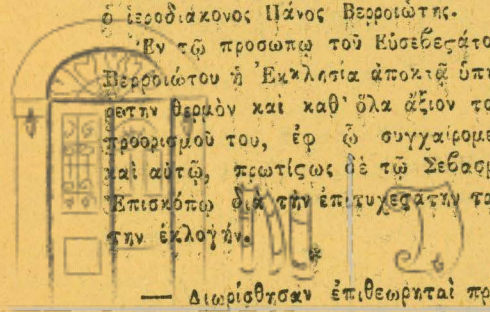 ὁ ἱεροδιάκονος Πάνος Βερροιώτης.
Ἐν τῷ προσώπῳ τοῦ Εὐσεβεςάτο
Βερροιώτου ἡ Ἐκκλησία ἀποκτᾷ ὑπη
ρέτην θερμὸν καὶ καθ' ὅλα ἄξιον το
προορισμοῦ του, ἐφ ᾧ συγχαίρομε
καὶ αὐτῷ, πρωτίςως δὲ τῷ Σεβασμ
Ἐπισκόπῳ διὰ τὴν ἐπιτυχεςάτην τα
την ἐκλογήν.
— Διωρίσθησαν ἐπιθεωρηταὶ πρ